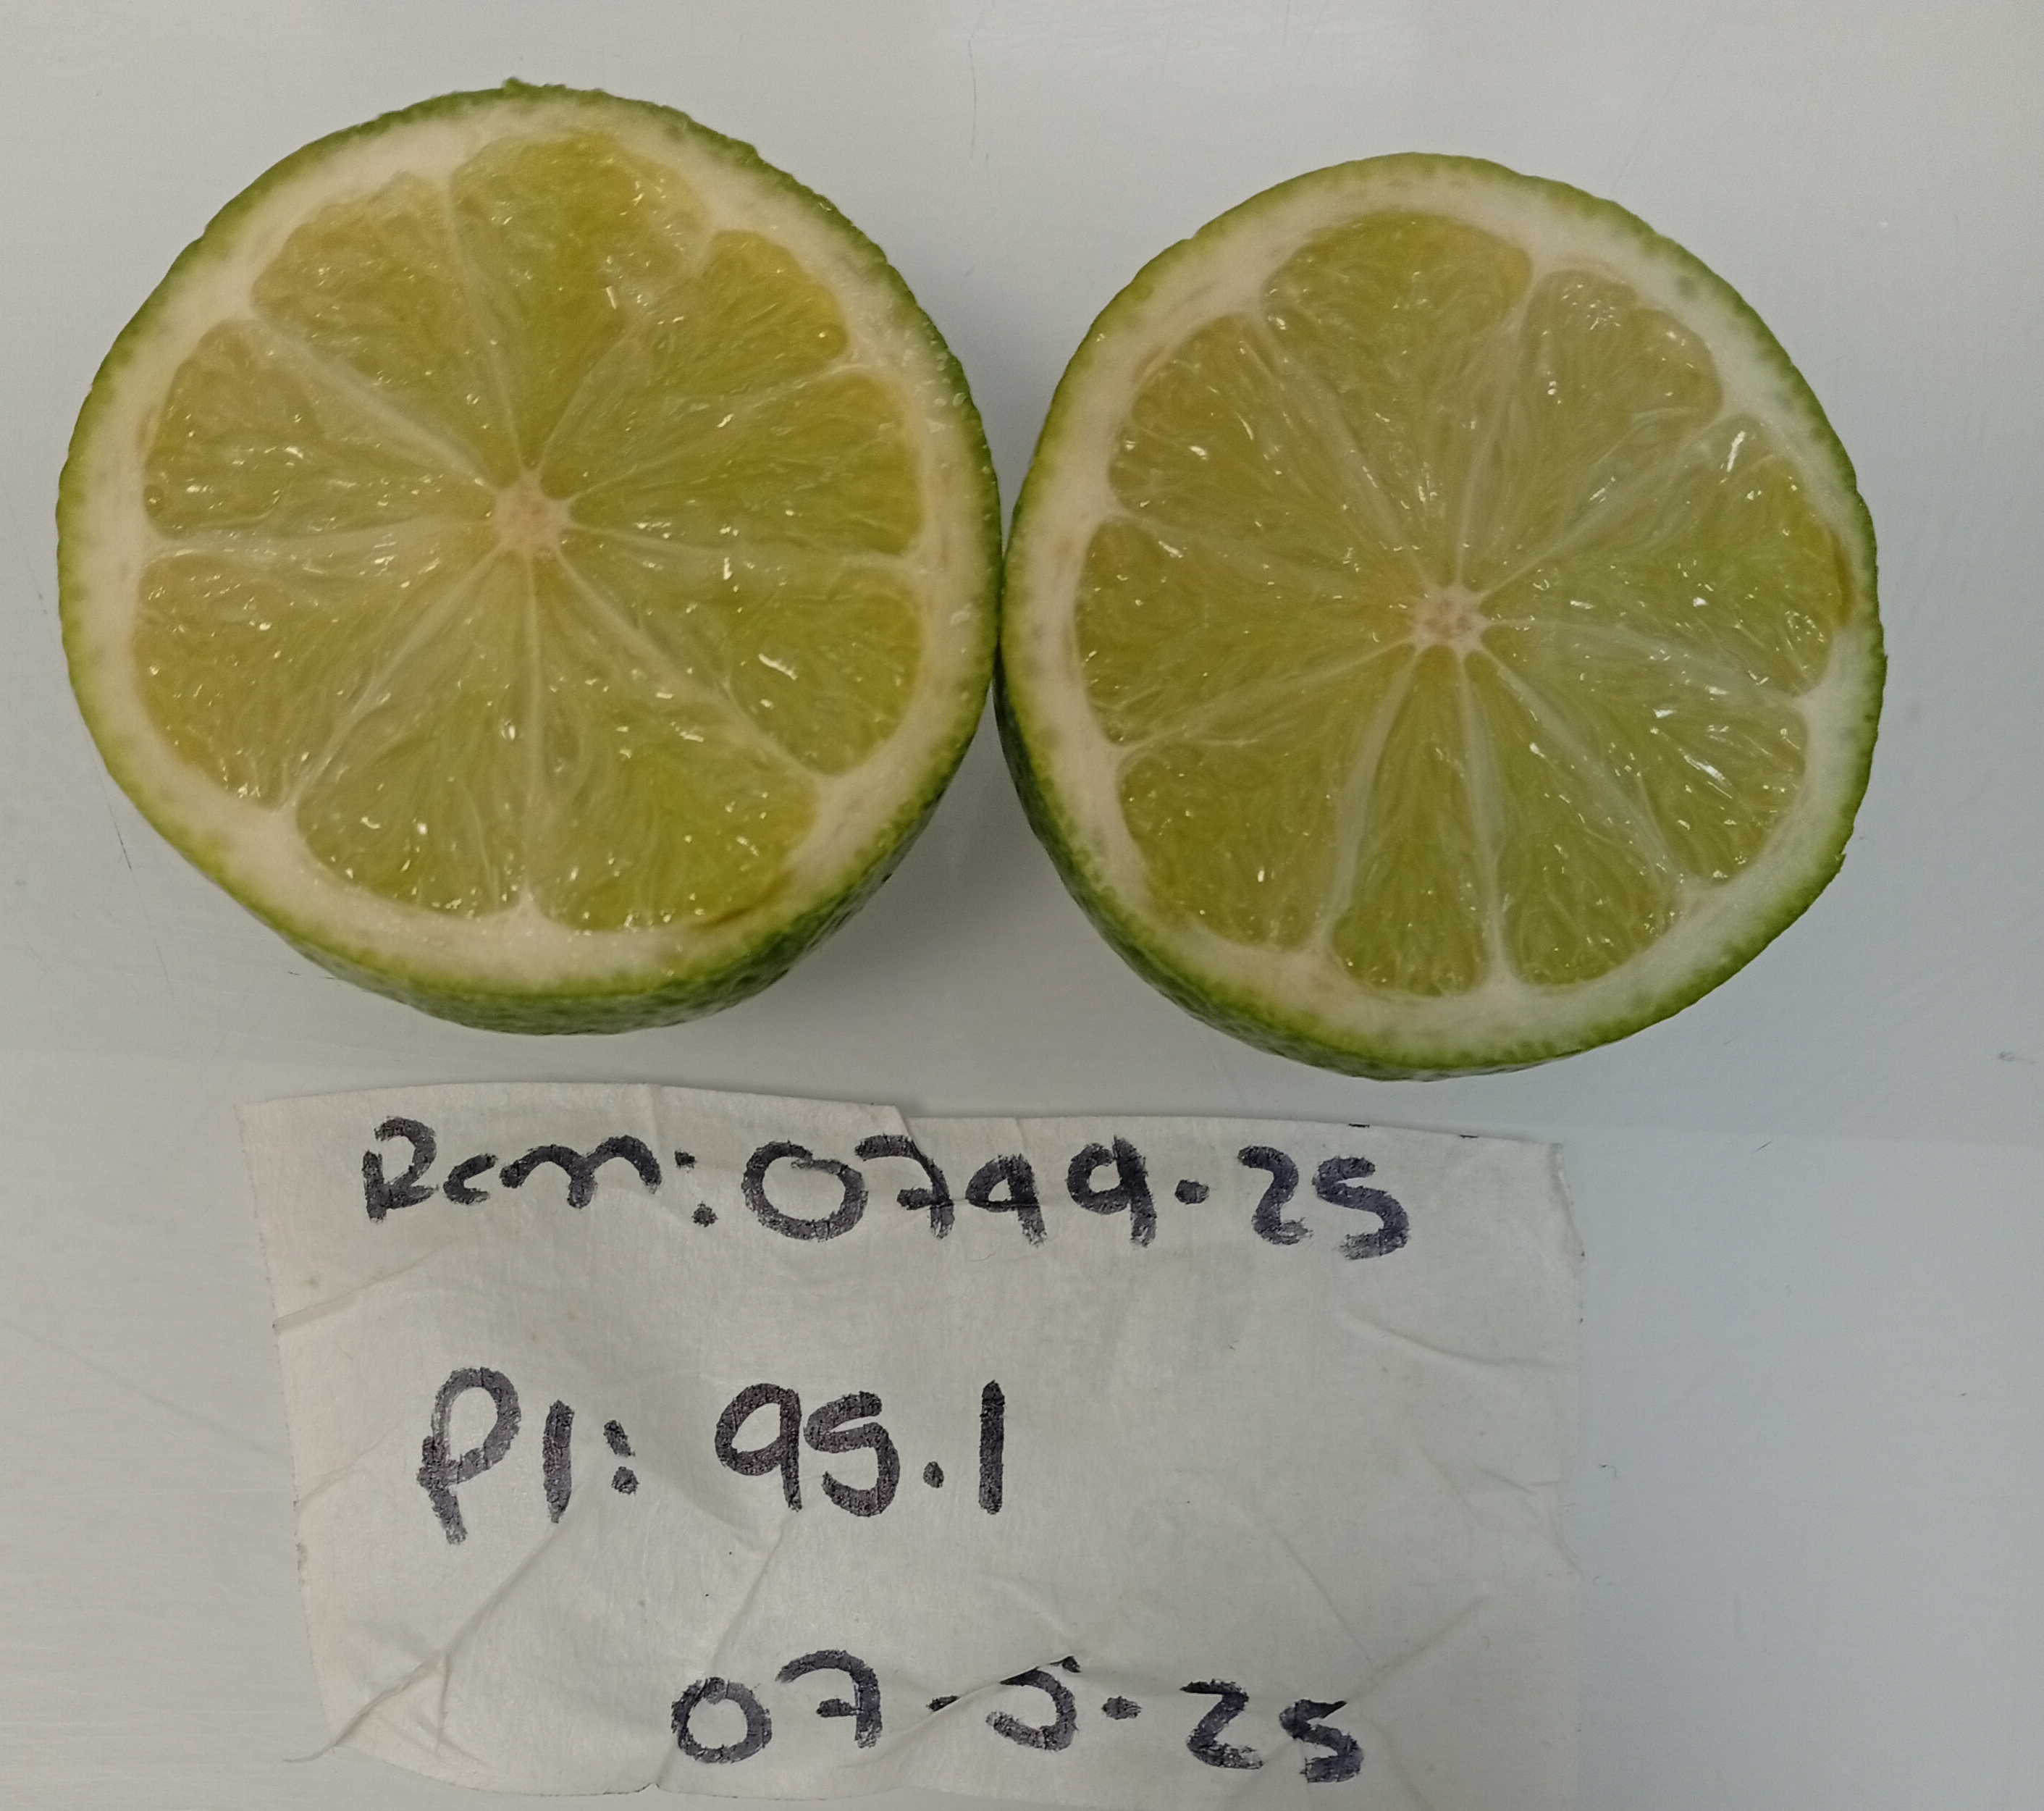 Rem: 0799-25
P1: 95.1
07-5-25